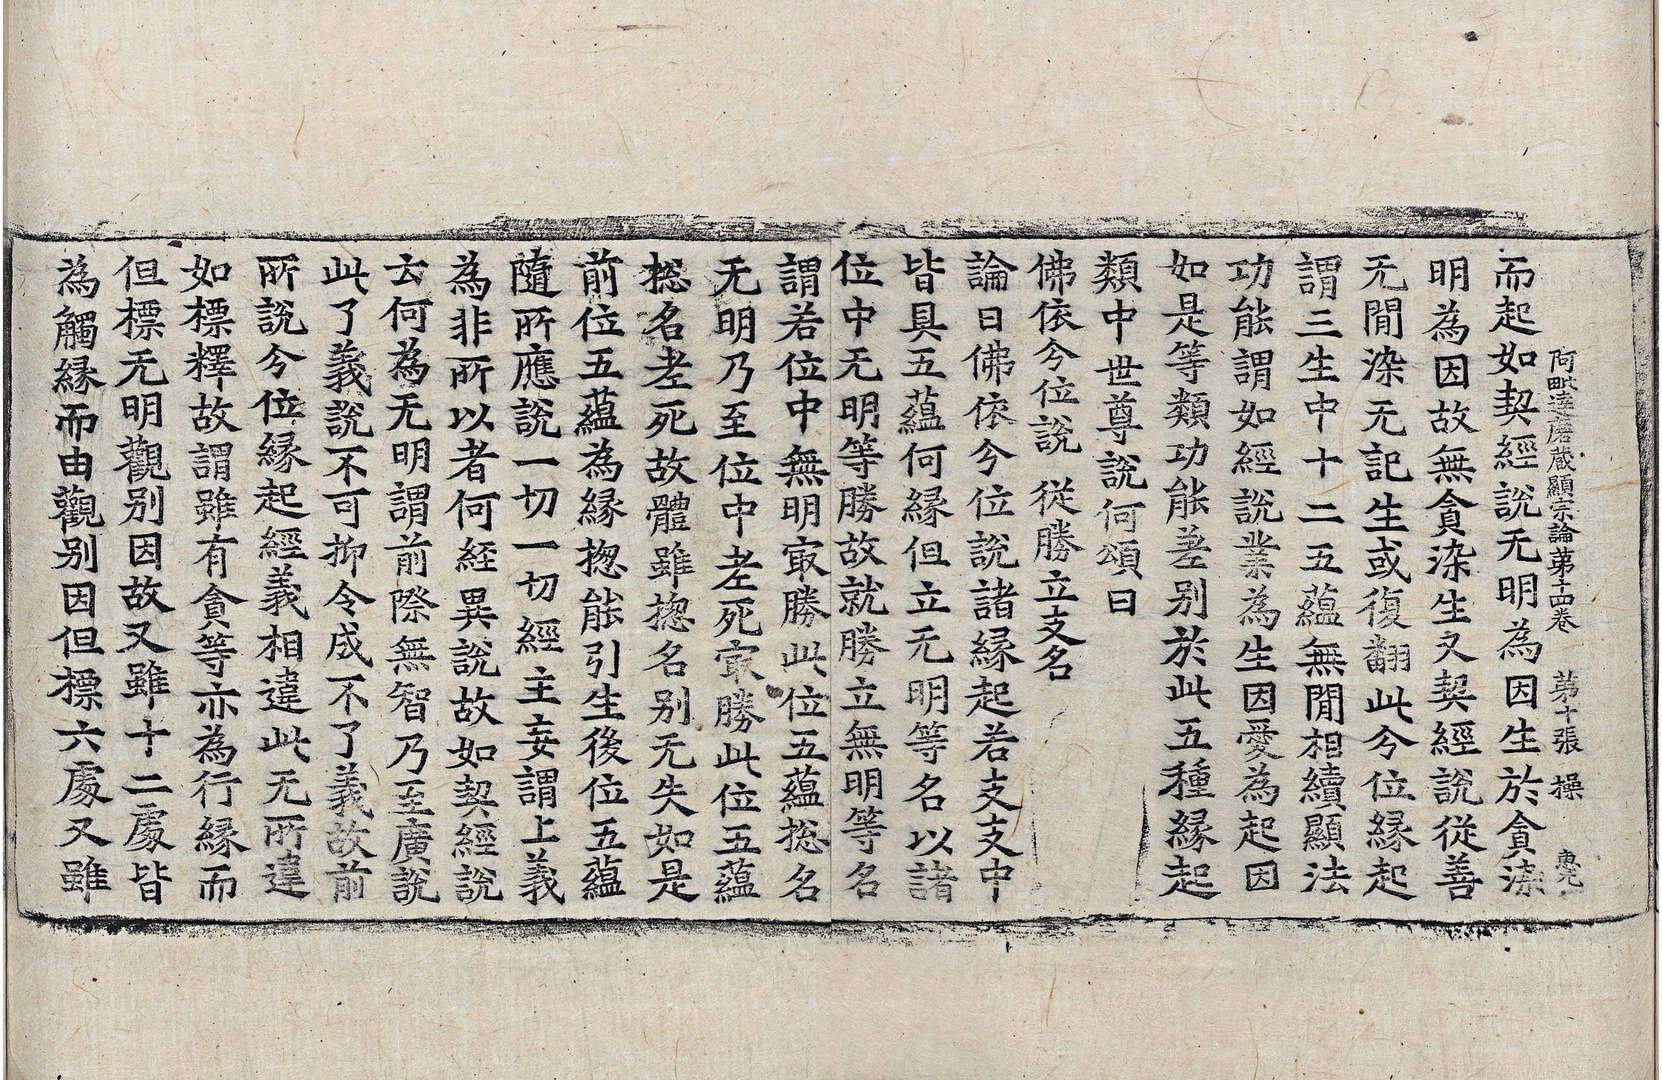 阿毗達磨藏顯宗論第十四卷 第十張 操 惠允
而起如契經說无明為因生於貪染
明為因故無貪染生又契經說從善
无間染无記生或復翻此今位緣起
謂三生中十二五蘊無間相續顯法
功能謂如經說業為生因愛為起因
如是等類功能差别於此五種緣起
類中世尊說何頌曰
佛依今位說 從勝立支名
論曰佛依今位說諸緣起若支支中
皆具五蘊何緣但立无明等名以諸
位中无明等勝故就勝立無明等名
謂若位中無明㝡勝此位五蘊捴名
无明乃至位中老死㝡勝此位五蘊
捴名老死故體雖捴名别无失如是
前位五蘊為緣捴能引生後位五蘊
隨所應說一切一切經主妄謂上義
為非所以者何經異說故如契經說
云何為无明謂前際無智乃至廣說
此了義說不可抑令成不了義故前
所說今位緣起經義相違此无所違
如標釋故謂雖有貪等亦為行緣而
但標无明觀别因故又雖十二處皆
為觸緣而由觀别因但標六處又雖